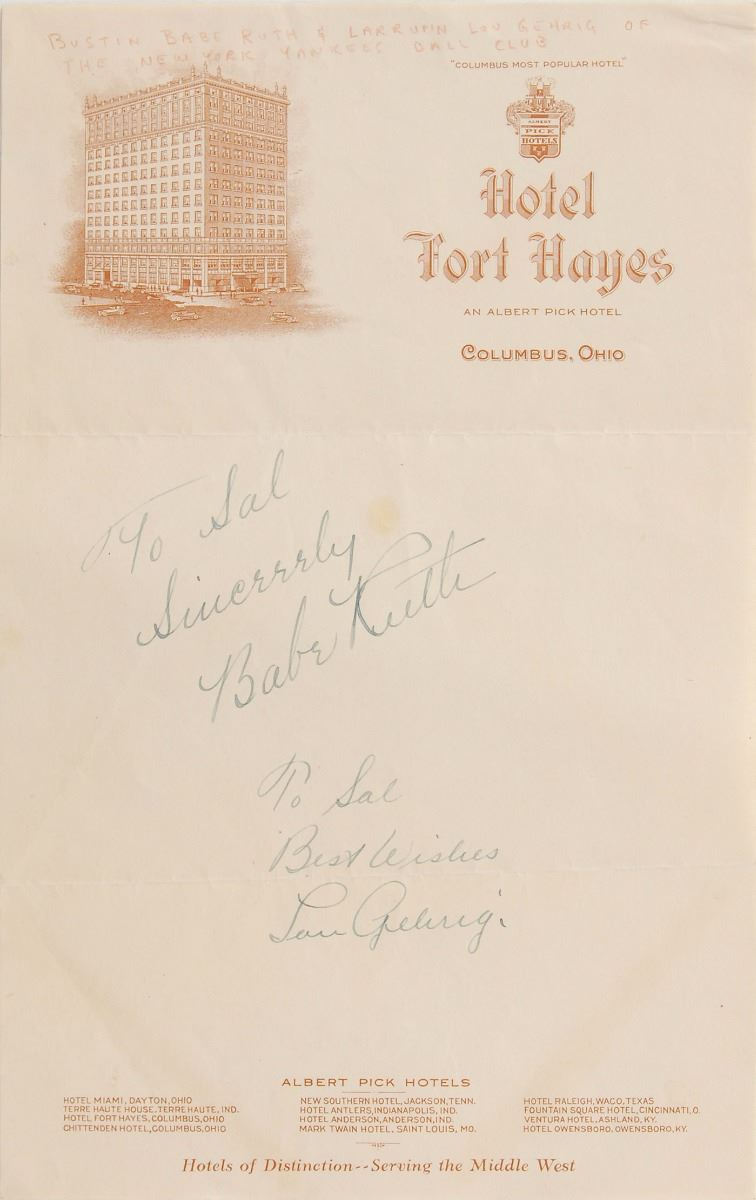 BUSTIN BABE RUTH & LARRUPIN LOU GEHRIG OF
THE NEW YORK YANKEES BALL CLUB
"COLUMBUS MOST POPULAR HOTEL"
ALBERT
PICK
HOTELS
Hotel
Fort Hayes
AN ALBERT PICK HOTEL
COLUMBUS, OHIO
To Sal
Sincerely
Babe Ruth
To Sal
Best Wishes
Lou Gehrig.
ALBERT PICK HOTELS
HOTEL MIAMI, DAYTON, OHIO
TERRE HAUTE HOUSE, TERRE HAUTE, IND.
HOTEL FORT HAYES, COLUMBUS, OHIO
CHITTENDEN HOTEL, COLUMBUS, OHIO
NEW SOUTHERN HOTEL, JACKSON, TENN.
HOTEL ANTLERS, INDIANAPOLIS, IND.
HOTEL ANDERSON, ANDERSON, IND
MARK TWAIN HOTEL, SAINT LOUIS, MO.
HOTEL RALEIGH, WACO, TEXAS
FOUNTAIN SQUARE HOTEL, CINCINNATI, O.
VENTURA HOTEL, ASHLAND, KY.
HOTEL OWENSBORO, OWENSBORO, KY.
Hotels of Distinction--Serving the Middle West